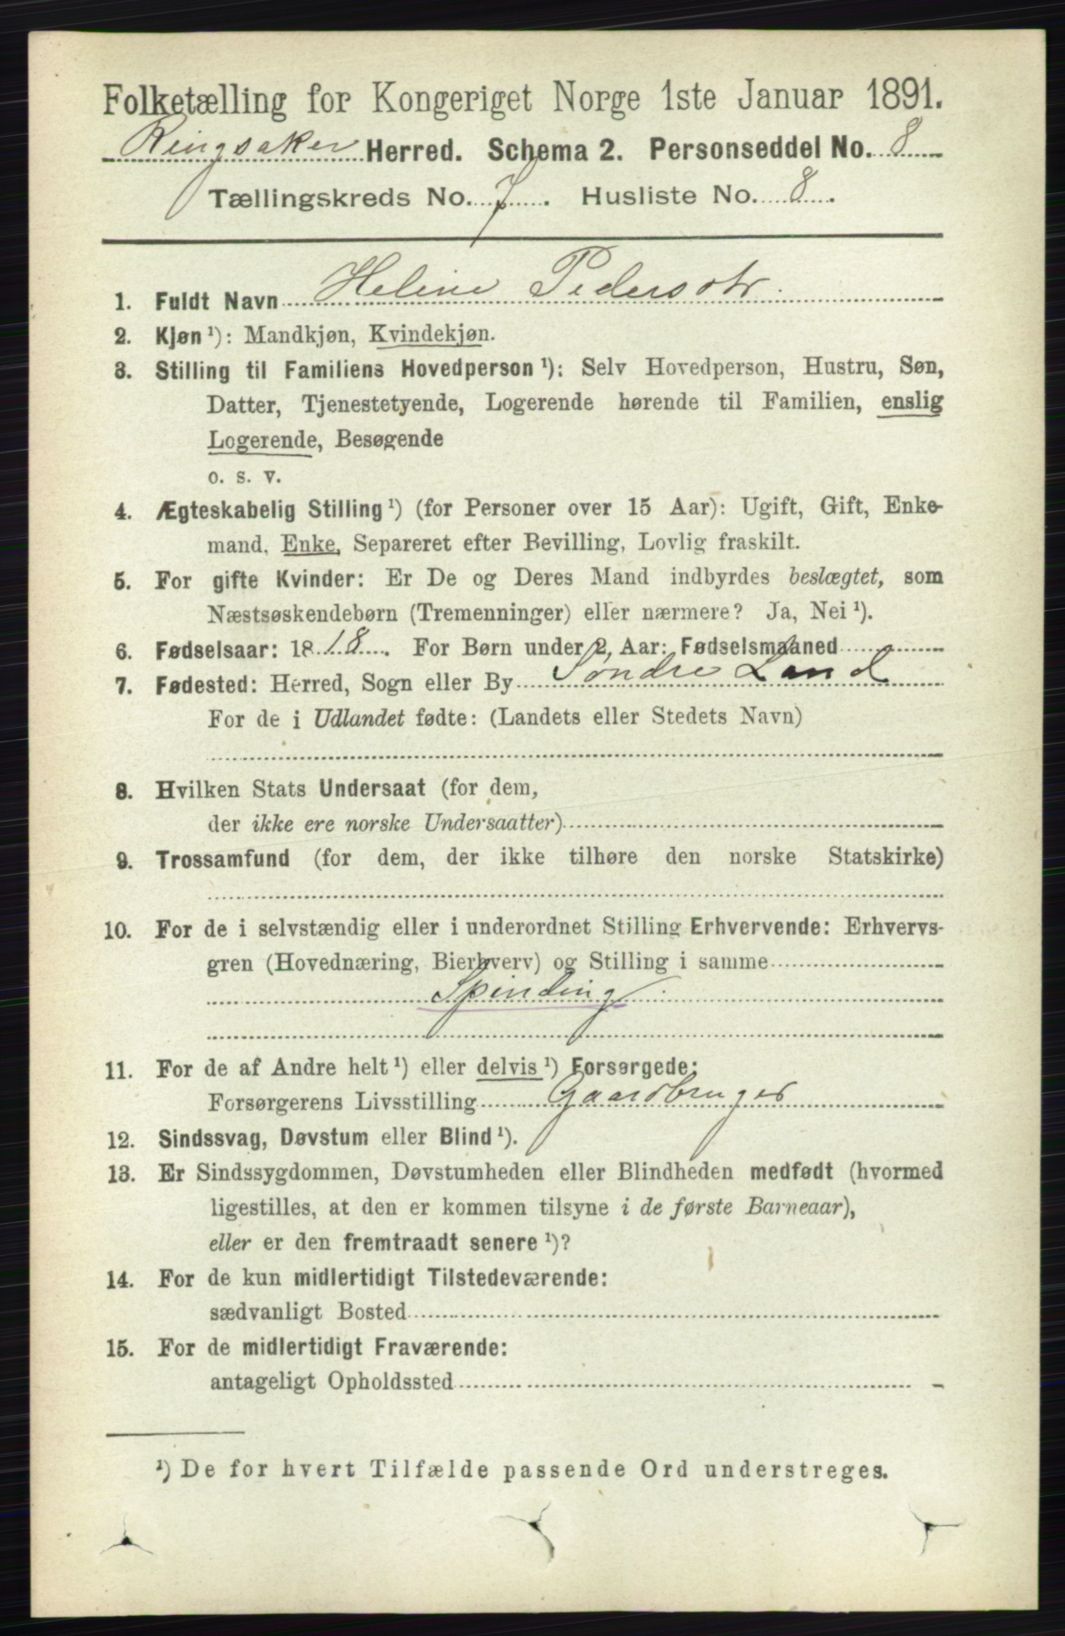 Folketælling for Kongeriget Norge 1ste Januar 1891.
Ringsaker Herred. Schema 2. Personseddel No. 8
Tællingskreds No. 7. Husliste No. 8.
1. Fuldt Navn Helene Pedersdtr.
2. Kjøn ¹): Mandkjøn, Kvindekjøn.
3. Stilling til Familiens Hovedperson ¹): Selv Hovedperson, Hustru, Søn,
Datter, Tjenestetyende, Logerende hørende til Familien, enslig
Logerende, Besøgende
o. s. v.
4. Ægteskabelig Stilling ¹) (for Personer over 15 Aar): Ugift, Gift, Enke-
mand, Enke, Separeret efter Bevilling, Lovlig fraskilt.
5. For gifte Kvinder: Er De og Deres Mand indbyrdes beslægtet, som
Næstsøskendebørn (Tremenninger) eller nærmere? Ja, Nei ¹).
6. Fødselsaar: 1818. For Børn under 2 Aar: Fødselsmaaned
7. Fødested: Herred, Sogn eller By Søndre Land
For de i Udlandet fødte: (Landets eller Stedets Navn)
8. Hvilken Stats Undersaat (for dem,
der ikke ere norske Undersaatter)
9. Trossamfund (for dem, der ikke tilhøre den norske Statskirke)
10. For de i selvstændig eller i underordnet Stilling Erhvervende: Erhvervs-
gren (Hovednæring, Bierhverv) og Stilling i samme
Spinding
11. For de af Andre helt ¹) eller delvis ¹) Forsørgede:
Forsørgerens Livsstilling Gaardbruger
12. Sindssvag, Døvstum eller Blind ¹).
13. Er Sindssygdommen, Døvstumheden eller Blindheden medfødt (hvormed
ligestilles, at den er kommen tilsyne i de første Barneaar),
eller er den fremtraadt senere ¹)?
14. For de kun midlertidigt Tilstedeværende:
sædvanligt Bosted
15. For de midlertidigt Fraværende:
antageligt Opholdssted
¹) De for hvert Tilfælde passende Ord understreges.